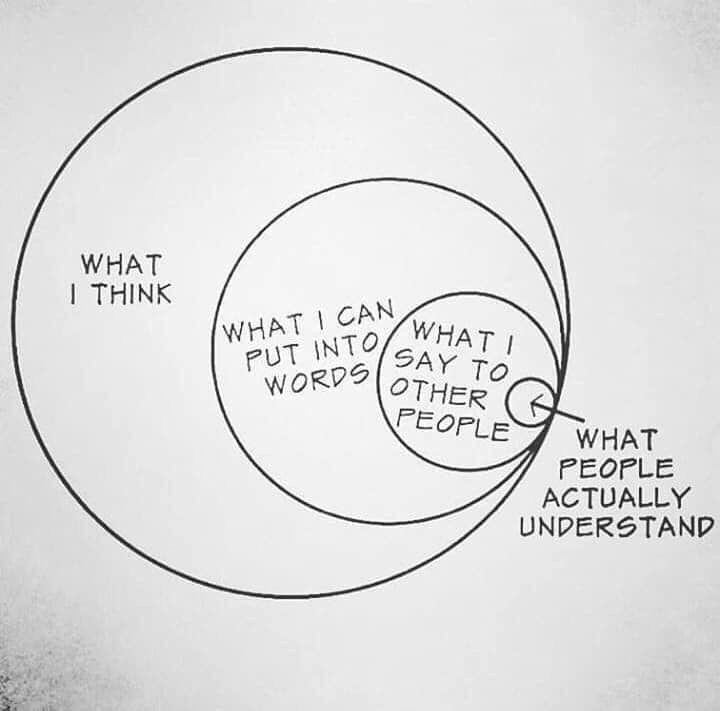 WHAT
I THINK
WHAT I CAN
PUT INTO
WORDS
WHAT I
SAY TO
OTHER
PEOPLE
WHAT
PEOPLE
ACTUALLY
UNDERSTAND